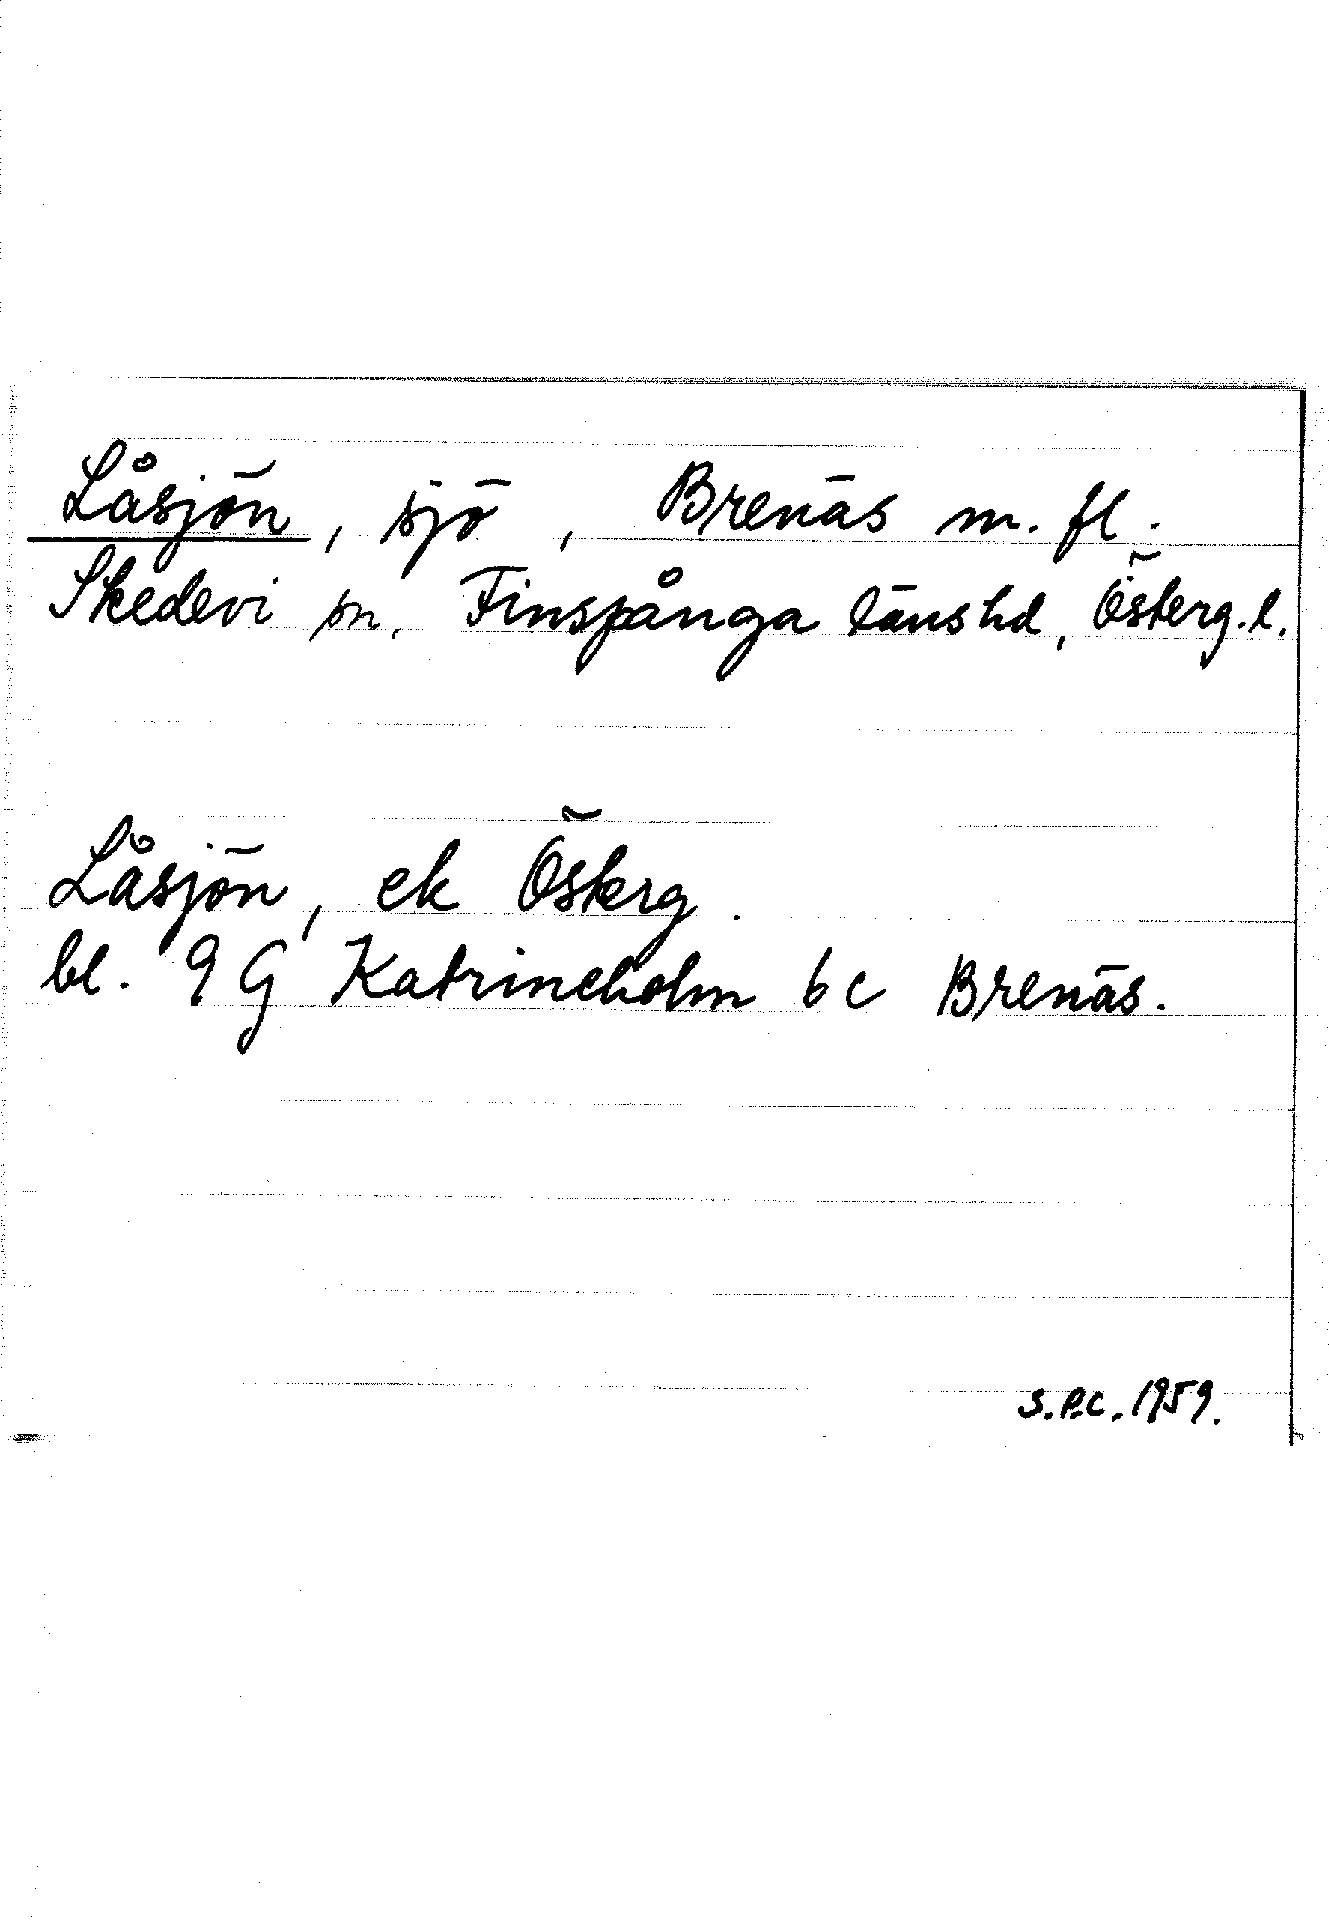 Låsjön, sjö, Brenäs m. fl.
Skedevi sn, Finspånga länshd, Österg. l.
Låsjön, ek Österg.
bl. 9 G Katrineholm b c Brenäs.
S.P.C. 1959.